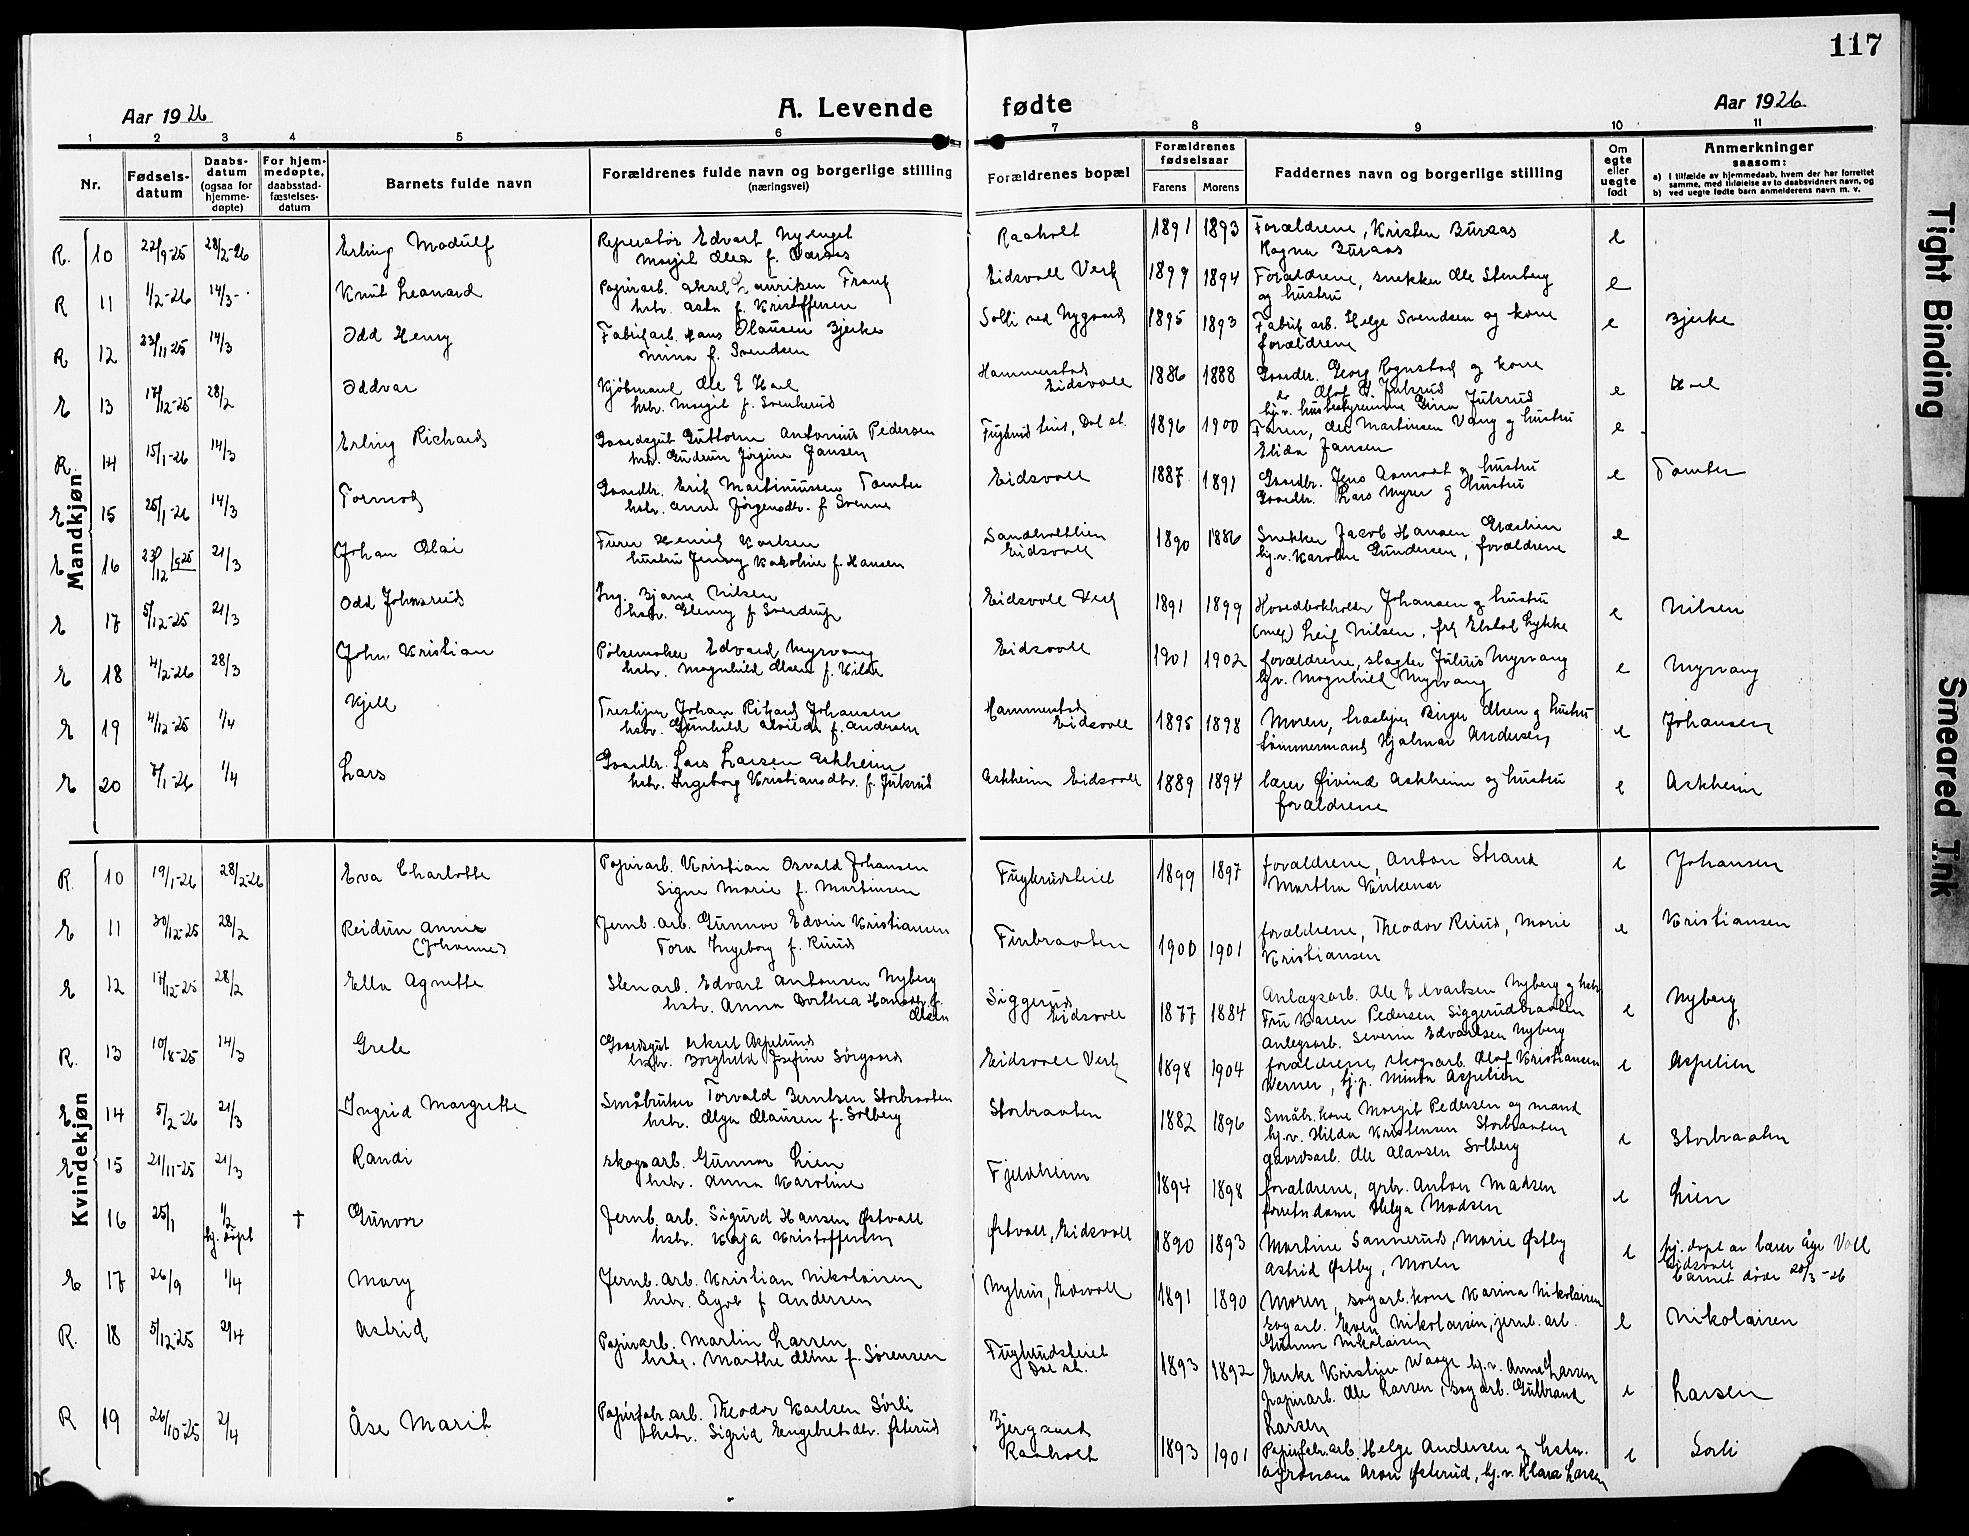 117
Aar 1926 A. Levende fødte Aar 1926
1 2 3 4 5 6 7 8 9 10 11
Nr.
Fødsels-
datum
Daabs-
datum
(ogsaa for
hjemme-
døpte)
For hjem-
medøpte,
daabsstad-
fæstelses-
datum
Barnets fulde navn
Forældrenes fulde navn og borgerlige stilling
(næringsvei)
Forældrenes bopæl
Forældrenes
fødselsaar
Farens Morens
Faddernes navn og borgerlige stilling
Om
egte
eller
uegte
født
Anmerkninger
saasom:
a) I tilfælde av hjemmedaab, hvem der har forrettet
samme, med tilføielse av to daabsvidners navn, og
b) ved uegte fødte barn anmelderens navn m. v.
Mandkjøn
R. 10 22/9-25 28/2-26 Erling Modulf Edvart Nyenget Raaholt 1891 1893 Forældrene, Kristen Buraas e
Magna Buraas
R 11 1/2-26 14/3- Knut Leonard Papirarb. Aksel Lauritsen Eidsvoll Verk 1899 1894 Forældrene, snekker Ole Stenberg e
hstr. Asta f. Kristoffersen og hustru
R 12 23/11-25 14/3 Odd Henry Fabrikarb. Hans Olausen Bjerke Solli ved Nygaard 1895 1893 Fabrik arb. Helge Svendsen og kone e Bjerke
Mina f. Svendsen forældrene
E 13 17/12-25 28/2 Oddvar Kjøbmand Ole E Hoel Hammerstad 1886 1888 Gaardbr. Georg Rognstad og kone e Hoel
hstr. Margit f. Svenkerud Eidsvoll Olaf Julsrud
hj.v. husbestyrerinne Gina Julsrud
R. 14 15/1-26 14/3 Erling Richard Gaardsgut Guttorm Antonius Pedersen Dal st. 1896 1900 Faren, Ole Martinsen Vang og hustru e
hstr. Gudrun Jørgine Jansen Elida Jansen
E 15 25/1-26 14/3 Tormod Gaardbr. Erik Martinussen Tomter Eidsvoll 1887 1891 Gaardbr. Jens og hustru e Tomter
hstr. Anne Jørgensdtr. f Svenne Gaardbr. Lars Myrer og Hustru
E 16 23/12 1925 21/3 Johan Olai Henrik Karlsen Eidsvoll 1890 1886 Snekker Jacob Hansen e
hustru Jenny Karoline f. Hansen hj.v. Karoline Gundersen, forældrene
E 17 5/12-25 21/3 Odd Johnsrud Ing. Bjarne Nilsen Eidsvoll Verk 1891 1899 Hovedbokholder Johansen og hustru e Nilsen
hstr. f Leif Nilsen, frk Lykke
E 18 4/2-26 28/3 John Kristian Pølsemaker Edvard Myrvang Eidsvoll 1901 1902 forældrene, slagter Julius Myrvang e Myrvang
hstr. Magnhild Olsen f. hj.v. Magnhild Myrvang
E 19 4/12-25 1/4 Kjell Johan Rikard Johansen Hammerstad 1895 1898 Moren, Birger Olsen og hustru e Johansen
hstr. Gunhild Alvilde f. Andersen Eidsvoll tømmermand Hjalmar Andersen
E 20 7/1-26 1/4 Lars Gaardbr. Lars Larsen Askheim Askheim Eidsvoll 1889 1894 lærer Øivind Askheim og hustru e Askheim
hstr. Ingeborg Kristiansdtr. f. Julsrud forældrene
Kvindekjøn
R. 10 19/1-26 28/2-26 Eva Charlotte Papirarb. Kristian Osvald Johansen Fuglerudsleiet 1899 1897 forældrene, Anton Strand e Johansen
Signe Marie f. Martinsen Martha Kirkenær
E 11 30/12-25 28/2 Reidun Annie Jernb. arb. Gunnar Edvin Kristiansen Finbraaten 1900 1901 forældrene, Theodor Ruud, Marie e Kristiansen
(Johanne) Tora Ingeborg f. Ruud Kristiansen
E 12 17/12-25 28/2 Ella Agnette Stenarb. Edvart Antonsen Nyberg Siggerud 1877 1884 Anlægsarb. Ole Edvartsen Nyberg og hstr. e Nyberg,
hstr. Anna Dorthea Hansdtr. f. Olsen Eidsvoll Fru Karen Pedersen Siggerudbraaten
Anlegsarb. Severin Edvartsen Nyberg
R. 13 10/8-25 14/3 Grete Gaardsgut Eidsvoll Verk 1898 1904 forældrene, skogsarb. Olaf Kristiansen e Aspelien
hstr. Borghild Josefine Sørgaard Werner, hj.p. Minda Aspelien
E 14 5/2-26 21/3 Ingrid Margrethe Småbruker Torvald Berntsen Storbraaten Storbraaten 1882 1896 Småbr. kone Margit Pedersen og mand e Storbraaten
hstr. Olga Olausen f. Solberg hj.v. Hilda Kristensen Storbraaten
gaardsarb. Ole Olavsen Solberg
E 15 21/11-25 21/3 Randi skogsarb. Gunnar Lien Fjeldheim 1894 1898 forældrene, grbr. Anton Madsen e Lien
hstr. Anna Karoline Helga Madsen
16 25/1 1/2 hj. døpt † Gunvor Jernb. arb. Sigurd Hansen Østvoll Østvoll, Eidsvoll 1890 1893 Martine Sannerud, Marie Østby e hj. døpt av lærer Åge Voll
hstr. Kaja Kristoffersen Astrid Østby, Moren Eidsvoll
barnet døde 28/3-26
E 17 26/9 1/4 Mary Jernb. arb. Kristian Nikolaisen Nyhus, Eidsvoll 1891 1890 Moren, sagarb. kone Karina Nikolaisen e Nikolaisen
hstr. f Andersen sagarb. Even Nikolaisen, jernb. arb.
Gunnar Nikolaisen
R. 18 5/12-25 2/4 Astrid Papirarb. Martin Larsen Fuglerudsleiet 1893 1892 Enke Kristine Waage hj.v. Anne Larsen e Larsen
hstr. Marthe Oline f. Sørensen Dal st. papirarb. Ole Larsen, sagarb. Gulbrand
Larsen
R 19 26/10-25 2/4 Åse Marit Papirfabr. arb. Theodor Karlsen Sørli Bjergsund 1893 1901 Papirfabr. arb. Helge Andersen og hstr. e Sørli
hstr. Sigrid Engebretsdtr. Østerud Raaholt agronom Aron Østerud, hj.v. Klara Larsen
Tight Binding
Smeared Ink